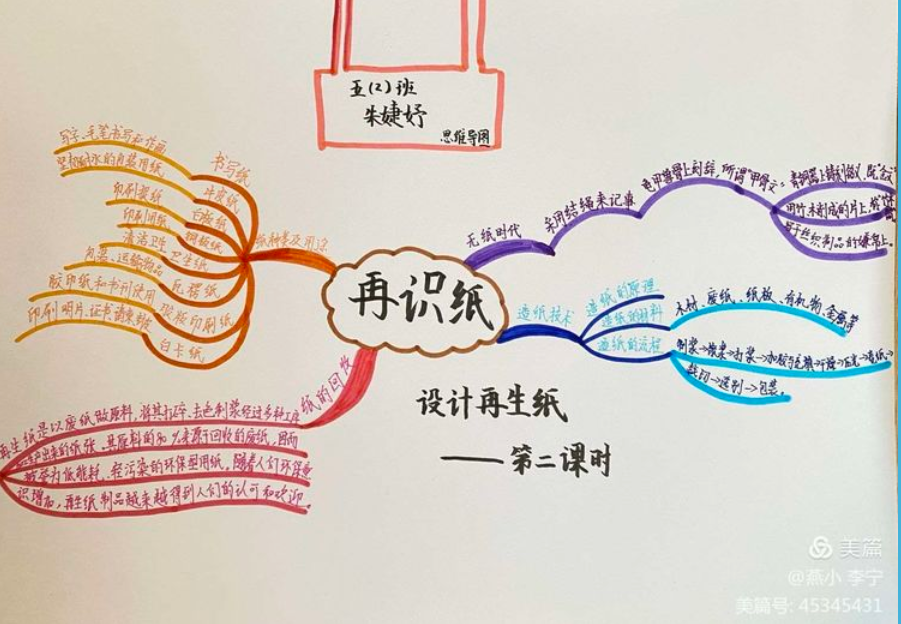 五(2)班
朱婕妤
思维导图
再识纸
设计再生纸
——第二课时
纸种类及用途
书写纸
写字、毛笔书写和作画
牛皮纸
坚韧耐水的包装用纸
白板纸
印刷浆纸
铜板纸
印刷用纸
卫生纸
清洁卫生
瓦楞纸
包装、运输物品
胶版印刷纸
胶印纸和书刊使用
白卡纸
印刷名片、证书、请柬
无纸时代
采用结绳来记事
龟甲兽骨上刻辞,所谓"甲骨文"
造纸技术
造纸的原理
造纸的材料
木材、废纸、纸板、有机物、金属等
造纸的流程
裁切→选别→包装。
纸的回收
再生纸是以废纸做原料,将其打碎、去色制浆经过多种工序
生产出来的纸张,其原料的80%来源于回收的废纸,因而
被誉为低能耗、轻污染的环保型用纸。随着人们环保意
识增加,再生纸制品越来越得到人们的认可和欢迎。
美篇
@燕小 李宁
美篇号: 45345431